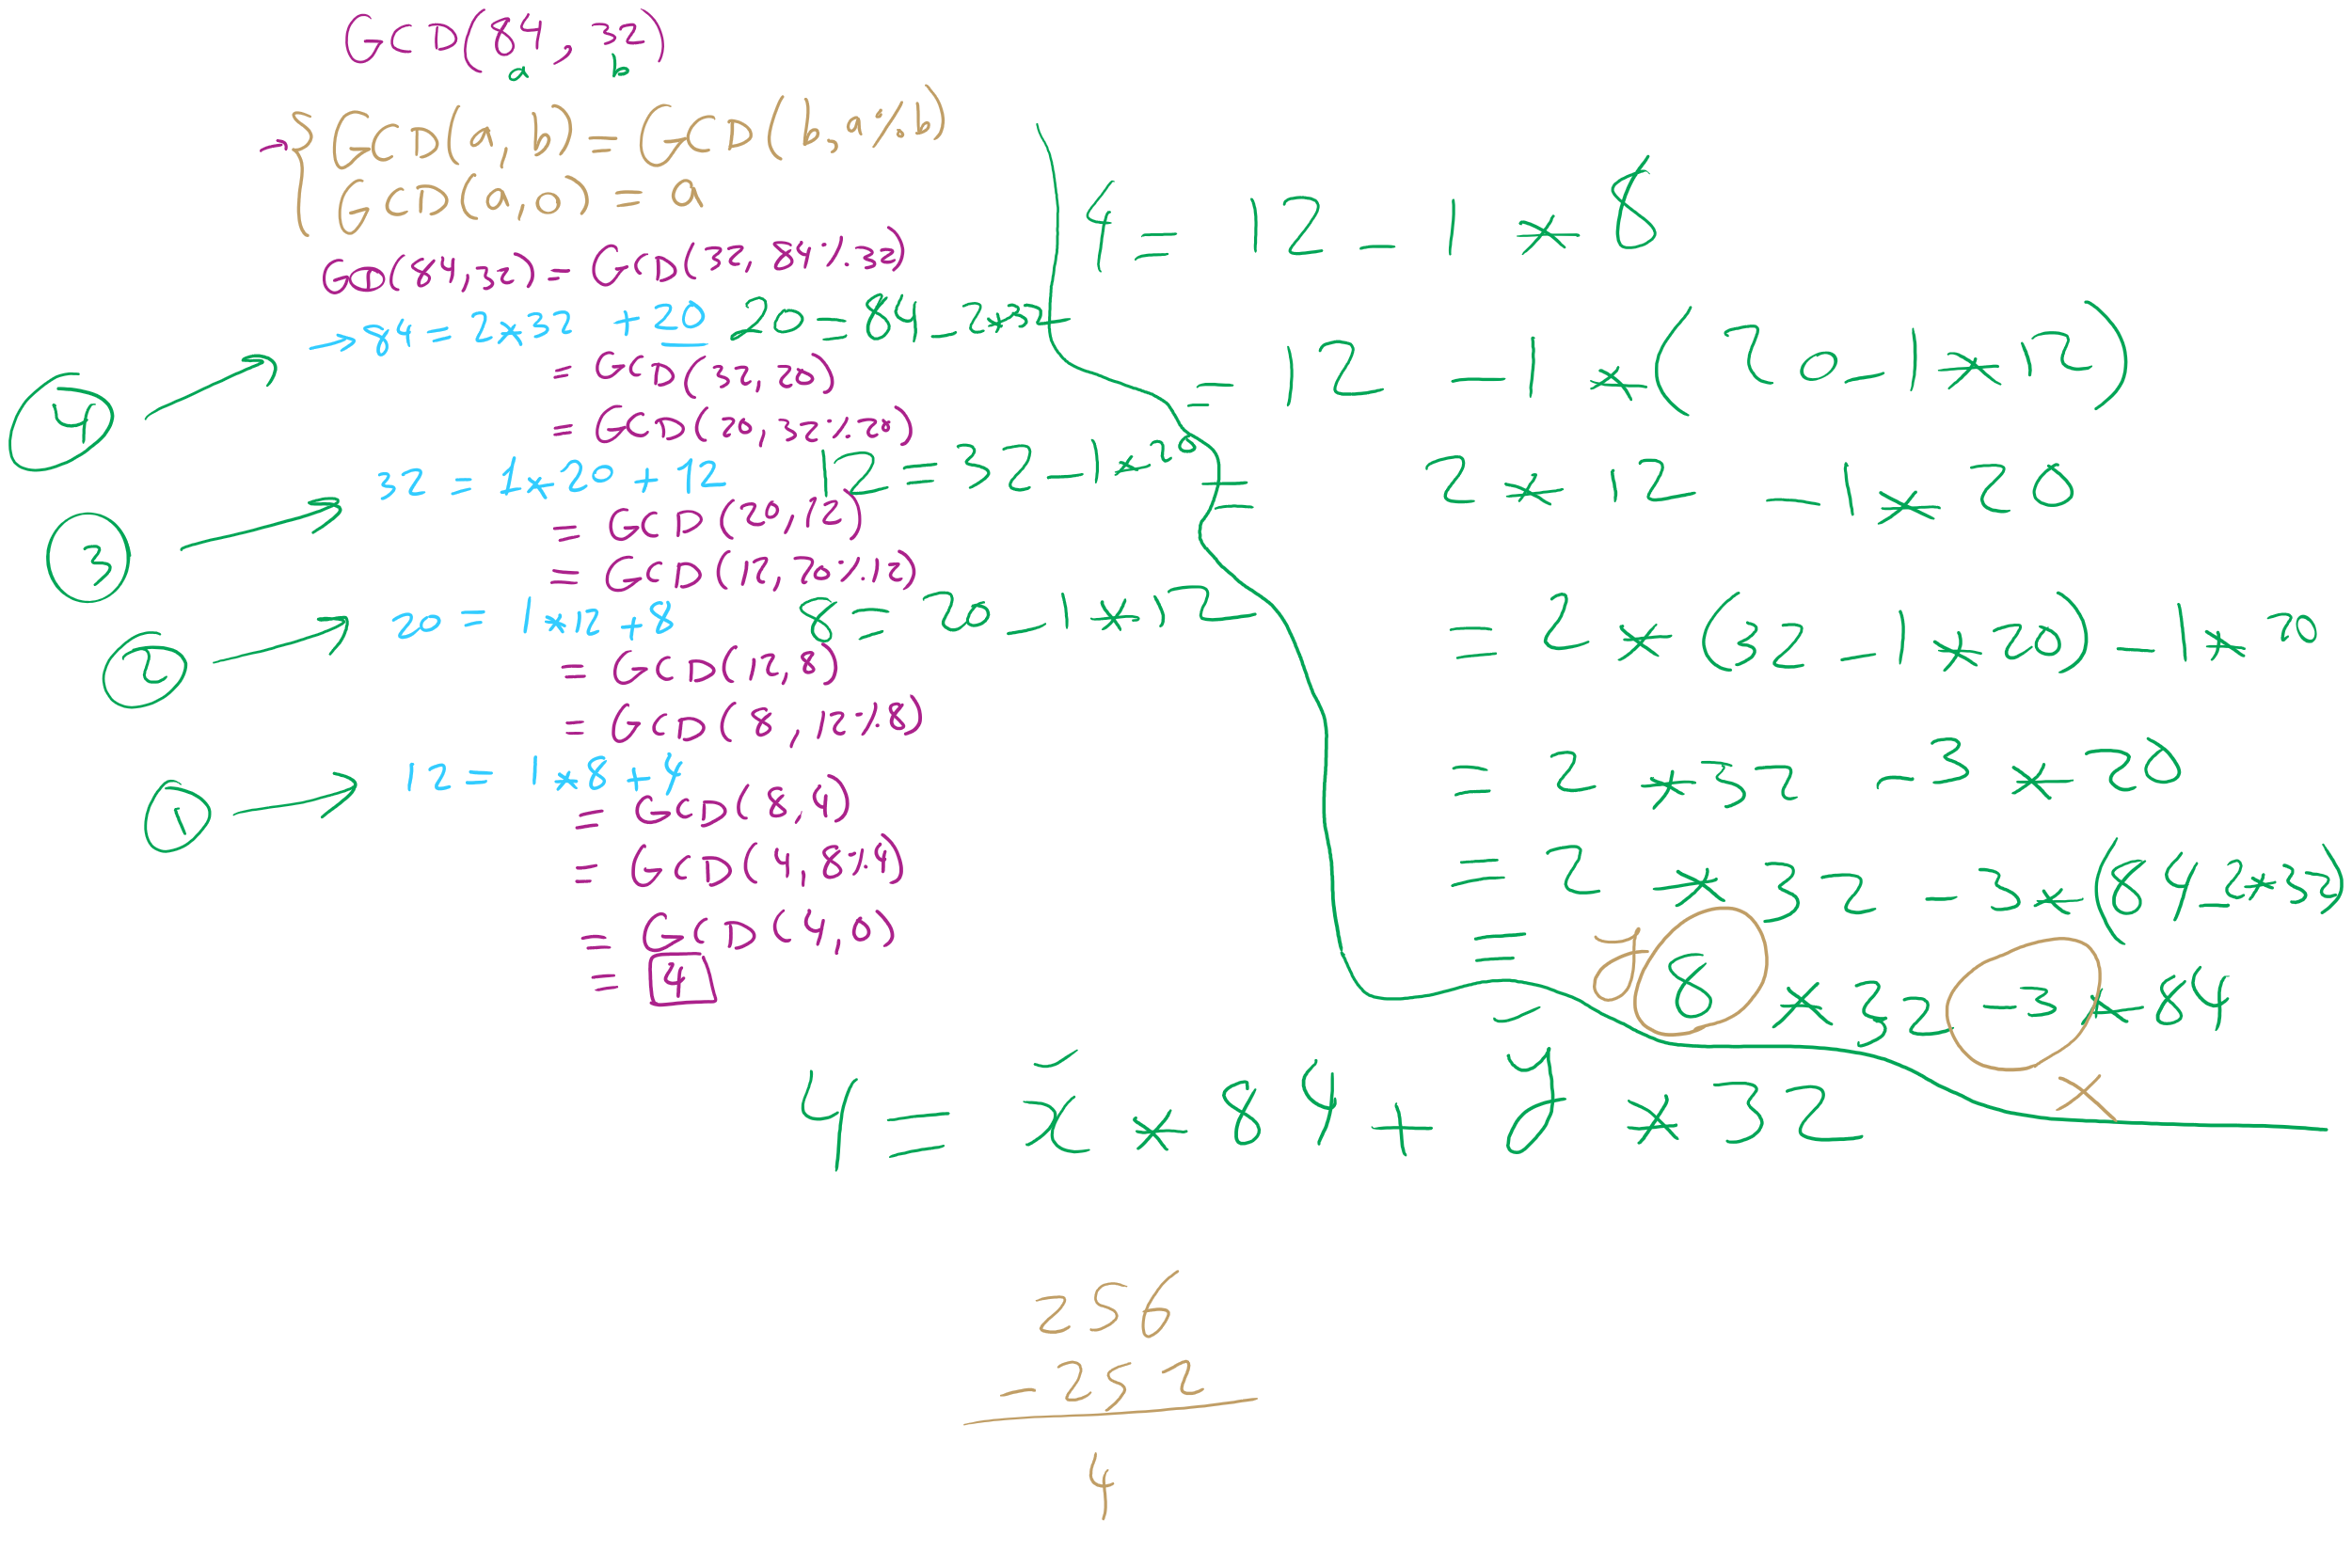 GCD(84, 32)
a b
→ { GCD(a, b) = GCD(b, a%b)
GCD(a, 0) = a
GCD(84, 32) = GCD(32, 84%32)
→ 84 = 2*32 + 20 20 = 84 - 2*32
④ →
= GCD(32, 20)
= GCD(20, 32%20)
③ → 32 = 1*20 + 12 12 = 32 - 1*20
= GCD(20, 12)
= GCD(12, 20%12)
② → 20 = 1*12 + 8 8 = 20 - 1*12
= GCD(12, 8)
= GCD(8, 12%8)
① → 12 = 1*8 + 4
= GCD(8, 4)
= GCD(4, 8%4)
= GCD(4, 0)
= 4
4 = 12 - 1 * 8
= 12 - 1 * (20 - 1*12)
= 2 * 12 - 1 * 20
= 2 * (32 - 1*20) - 1 * 20
= 2 * 32 - 3 * 20
= 2 * 32 - 3 * (84 - 2*32)
= y 8 * 32 - 3 * 84
x
4 = x * 84 + y * 32
256
- 252
4